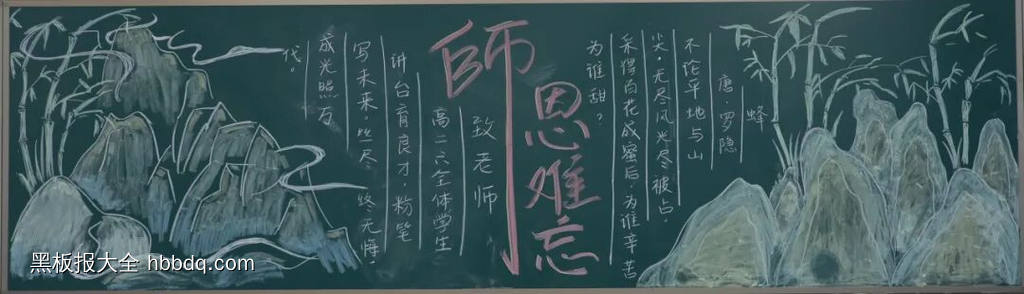 蜂
唐·罗隐
不论平地与山
尖，无尽风光尽被占。
采得百花成蜜后，为谁辛苦
为谁甜？
師恩难忘
致老师
高二六全体学生
讲台育良才，粉笔
写未来。丝尽 终无悔，
成光照万
代。
黑板报大全 hbbdq.com